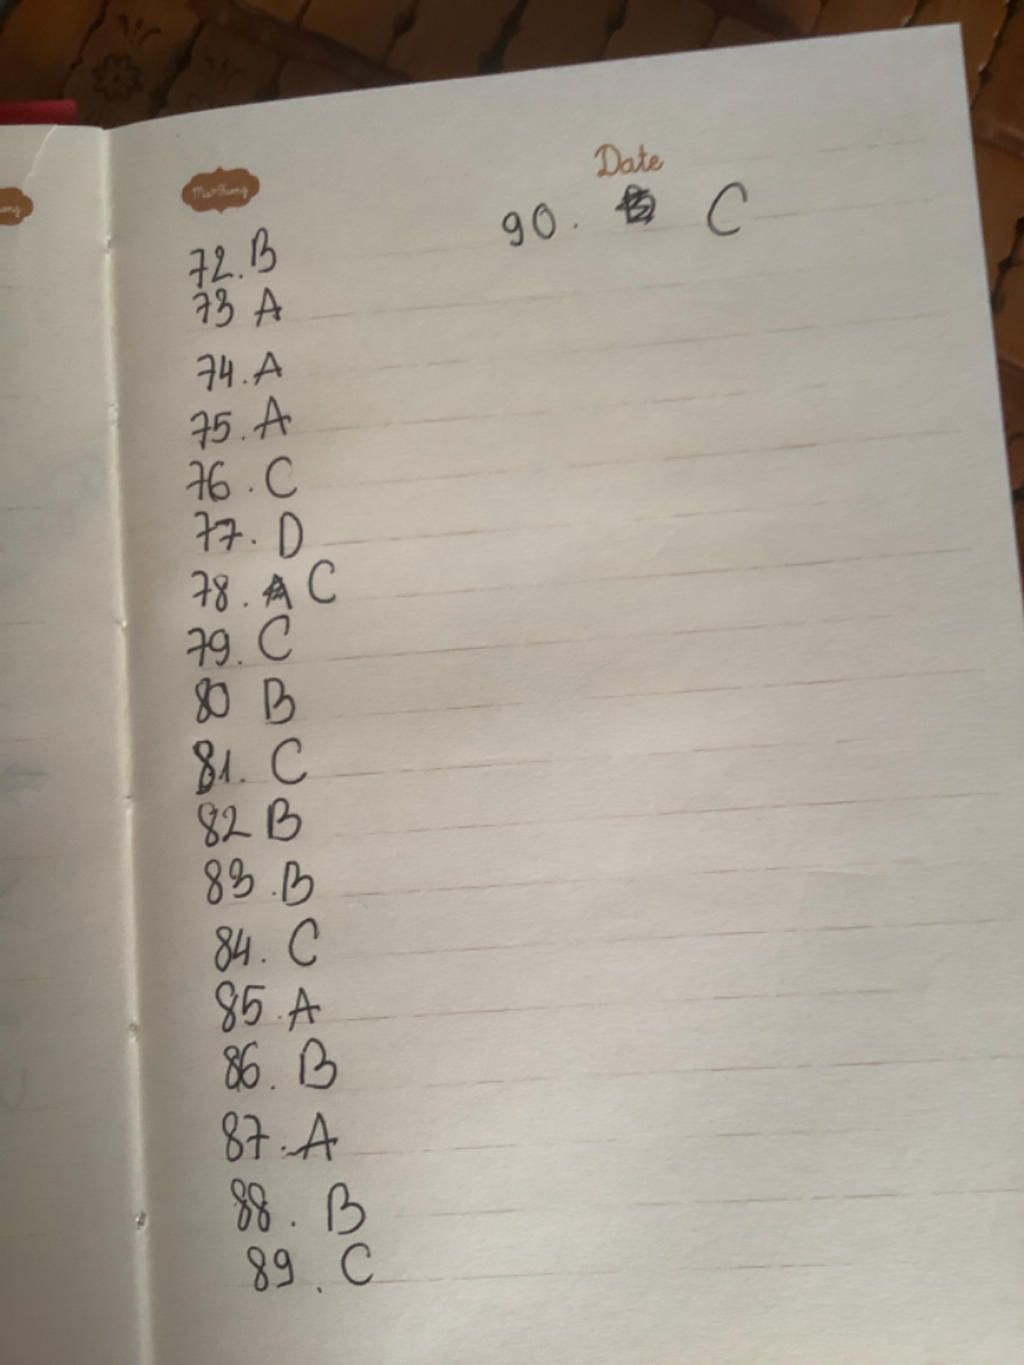 Date
72. B
73 A
74. A
75. A
76. C
77. D
78. A C
79. C
80 B
81. C
82 B
83. B
84. C
85. A
86. B
87. A
88. B
89. C
90. B C